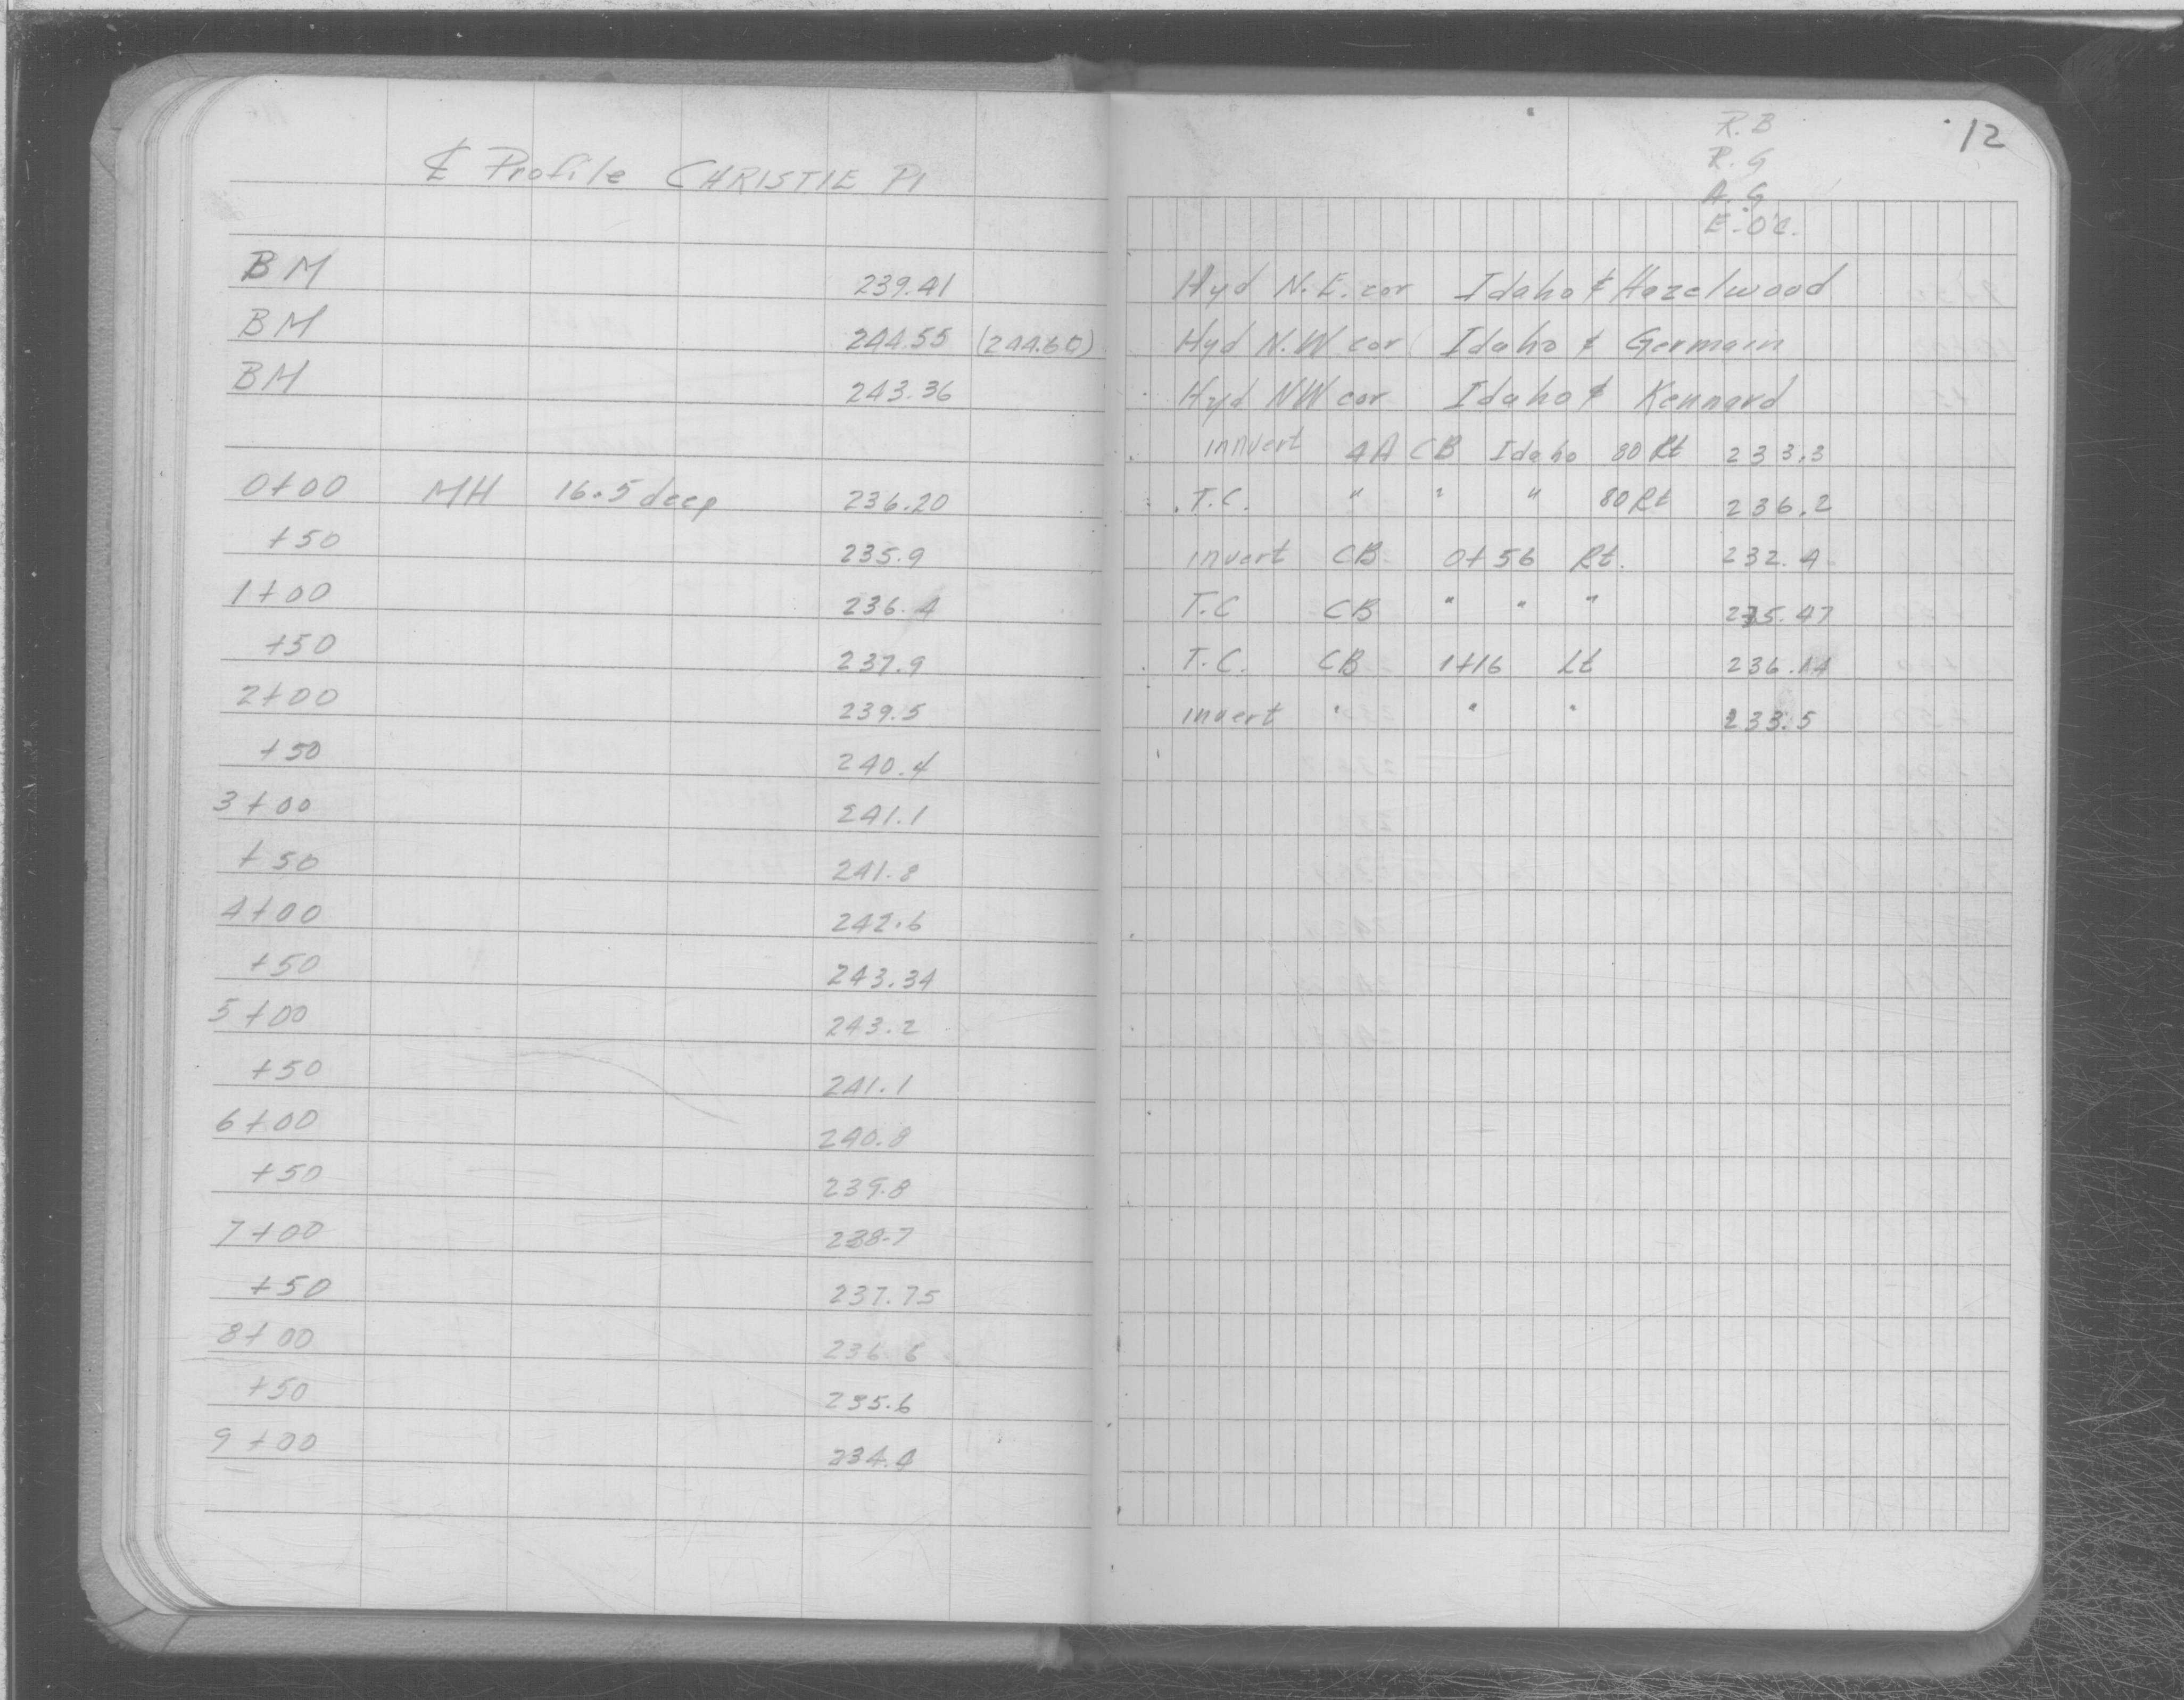 ℄ Profile CHRISTIE Pl
BM 239.41
BM 244.55 (244.60)
BM 243.36
0+00 MH 16.5 deep 236.20
+50 235.9
1+00 236.4
+50 237.9
2+00 239.5
+50 240.4
3+00 241.1
+50 241.8
4+00 242.6
+50 243.34
5+00 243.2
+50 241.1
6+00 240.8
+50 239.8
7+00 238.7
+50 237.75
8+00 236.6
+50 235.6
9+00 234.4
12
R.B
R.G
A.G
E.O'C.
Hyd N.E. cor Idaho & Hazelwood
Hyd N.W cor Idaho & Germain
Hyd NW cor Idaho & Kennard
innvert 4A CB Idaho 80 Rt 233.3
T.C. " " " 80 Rt 236.2
invert CB 0+56 Rt. 232.4
T.C CB " " " 235.47
T.C. CB 1+16 Lt 236.44
invert " " " 233.5